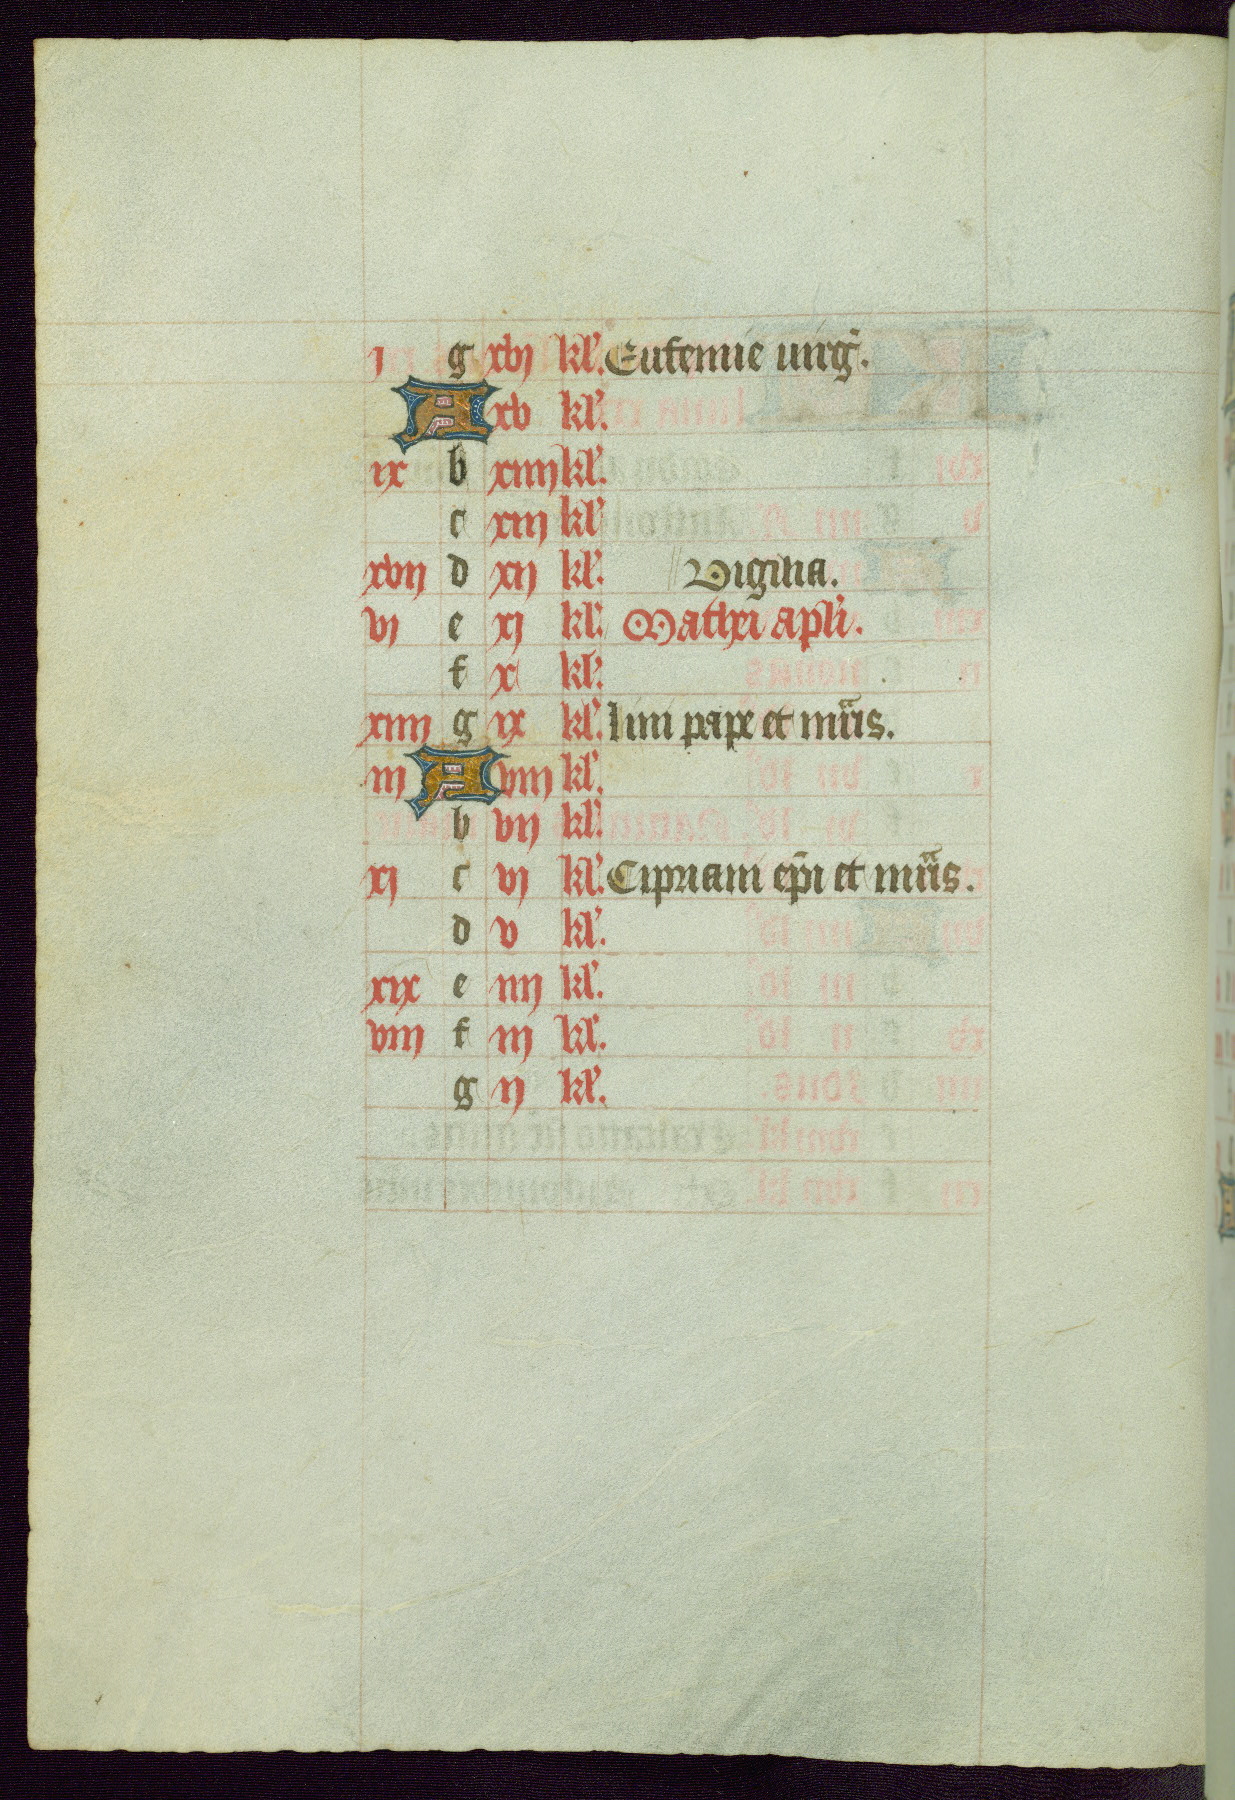 j g xvj kl'. Eufemie uirg̅.
A xv kl'.
ix b xiiij kl'.
c xiij kl'.
xvij d xij kl'. Vigilia.
vj e xj kl'. Mathei apl'i.
f x kl'.
xiiij g ix kl'. lini pape et mr̅is.
iij A viij kl'.
b vij kl'.
xj c vj kl'. Cipriani ep̅i et mr̅is.
d v kl'.
xix e iiij kl'.
viij f iij kl'.
g ij kl'.